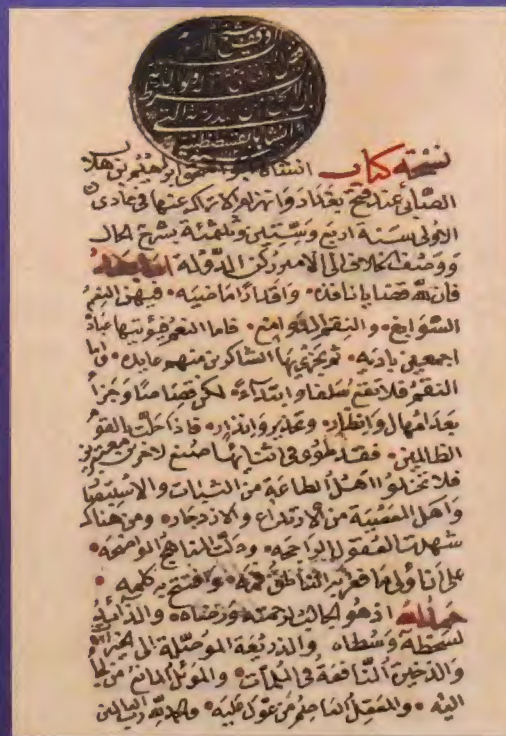 وقف شيخ الاسلام
ان لا يخرج من المدرسة التى
انشاها بقسطنطينية
نسخة كتاب انشاه ابو اسحق ابرهيم بن هلال
الصابى عند فتح بغداد وانهزام الاتراك عنها فى جمادى
الاولى سنة اربع وستين وثلثمئة بشرح الحال
ووصفها الى الامير ركن الدولة اما بعد
فان لله قضايا نافذه • واقدارا ماضيه • فيهن النعم
السوابغ • والنقم الدوامغ • فاما النعم فيؤتيها عباده
اجمعين باديه • ثم يجزى بها الشاكرين منهم عايده • واما
النقم فلا تقع سلفا وابتداء • لكن قصاصا وجزاء
بعد امهال وانظار • وتحذير وانذار • فاذا حلت بالقوم
الظالمين • فقد طوى فى اثنائها صنع لاخرين معتبرين
فلا تخلوا اهل الطاعة من الثبات والاستبصار
واهل المعصية من الارتداع والازدجار • ومن هناك
شهدت العقول الراجحه • ودلت المناهج الواضحه •
على ان اولى ما فغر به الناطق فمه • وافتتح به كلمه •
حمد لله اذ هو الجالب لرحمته ورضاه • والذائد
لسخطه وسطاه والذريعة الموصلة الى الخيرات
والذخيرة النافعة فى الملمات • والموئل المانع من لجا
اليه • والمعقل العاصم من عول عليه • والحمد لله رب العالمين